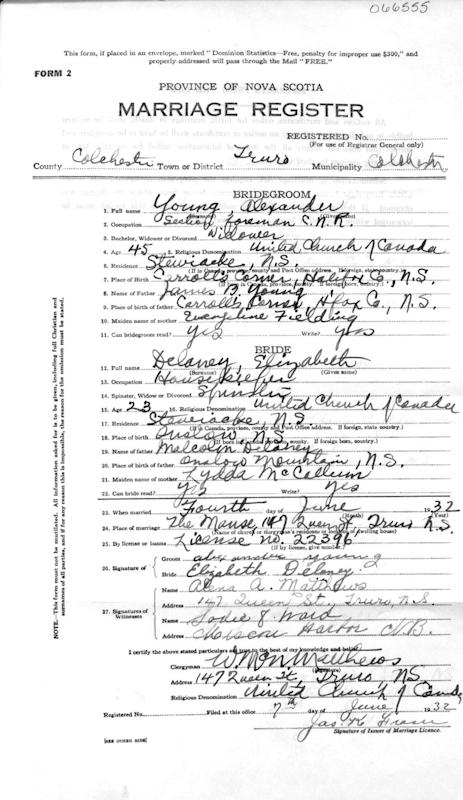 066555
This form, if placed in an envelope, marked "Dominion Statistics—Free, penalty for improper use $300," and
properly addressed will pass through the Mail "FREE."
FORM 2
PROVINCE OF NOVA SCOTIA
MARRIAGE REGISTER
REGISTERED No.
(For use of Registrar General only)
County Colchester Town or District Truro Municipality Colchester
BRIDEGROOM
1. Full name Young Alexander
(Surname) (Given name)
2. Occupation Section Foreman C.N.R.
3. Bachelor, Widower or Divorced Widower
4. Age 45 5. Religious Denomination United Church of Canada
6. Residence Stewiacke, N.S.
7. Place of Birth Carroll's Corner, Halifax Co., N.S.
8. Name of Father James B. Young
9. Place of birth of father Carroll's Corner, Hfax Co., N.S.
10. Maiden name of mother Evangeline Fielding
11. Can bridegroom read? Yes Write? Yes
BRIDE
12. Full name Delaney, Elizabeth
(Surname) (Given name)
13. Occupation Housekeeper
14. Spinster, Widow or Divorced Spinster
15. Age 23 16. Religious Denomination United Church of Canada
17. Residence Stewiacke N.S.
18. Place of birth Onslow, N.S.
19. Name of father Malcolm Delaney
20. Place of birth of father Onslow Mountain, N.S.
21. Maiden name of mother Lydda McCallum
22. Can bride read? Yes Write? Yes
23. When married Fourth day of June 1932
(Month) (Year)
24. Place of marriage The Manse, 147 Queen St. Truro N.S.
(Name of church or clergyman's residence or number of dwelling house)
25. By license or banns License No. 22396
(If by license, give number.)
26. Signature of
Groom alexander young
Bride Elizabeth Delaney
27. Signatures of Witnesses
Name Alena A. Matthews
Address 147 Queen St., Truro, N.S.
Name Sadie J. Ward
Address Miscou Harbor N.B.
I certify the above stated particulars are true to the best of my knowledge and belief.
Clergyman W McN Matthews
Address 147 Queen St, Truro, NS
Religious Denomination United Church of Canada
Registered No. Filed at this office 7th day of June 1932
Jas. K. Fraser
Signature of Issuer of Marriage Licence.
[SEE OTHER SIDE]
NOTE.—This form must not be mutilated. All information asked for is to be given, including full Christian and
surnames of all parties, and if for any reason this is impossible, the reason for the omission must be stated.